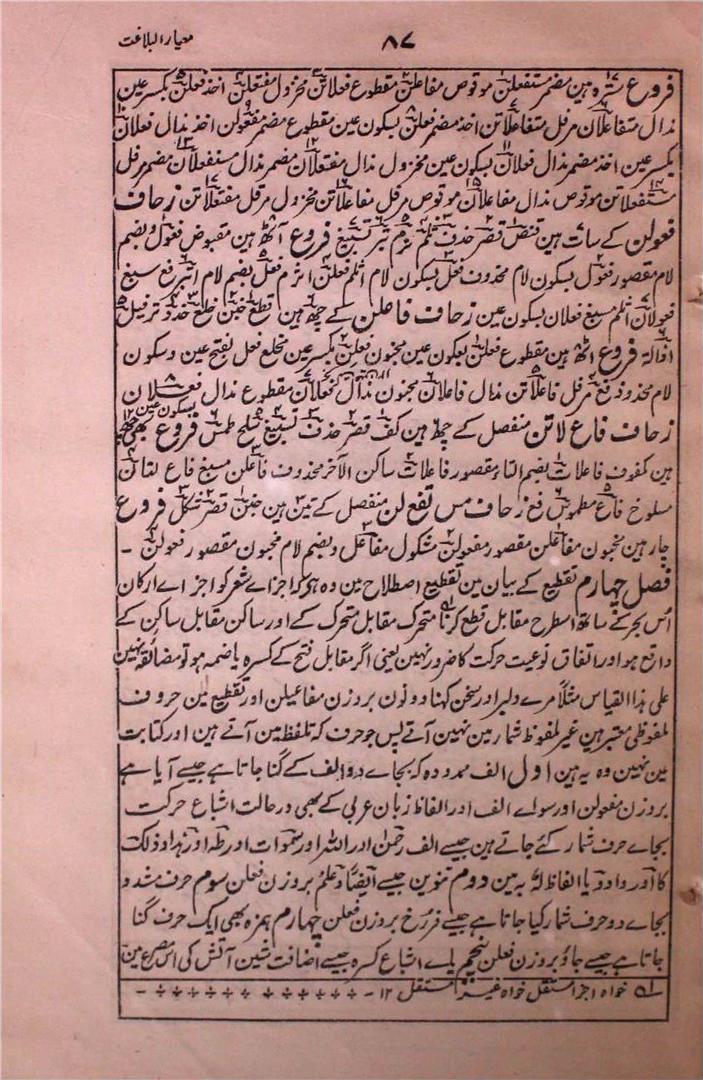 معیار البلاغت
۸۷
فروع سترہ ہین مضمر مستفعلن موقوص مفاعلن مقطوع فعلاتن مخزول مفتعلن اخذ فعلن بکسر عین
مذال متفاعلان مرفل متفاعلاتن اخذ مضمر فعلن بسکون عین مقطوع مضمر مفعولن اخذ مذال فعلان
بکسر عین اخذ مضمر مذال فعلان بسکون عین مخزول مذال مفتعلان مضمر مذال مستفعلان مضمر مرفل
مستفعلاتن موقوص مذال مفاعلان موقوص مرفل مفاعلاتن مخزول مرفل مفتعلاتن زحاف
فعولن کے سات ہین قبض قصر حذف ثلم ثرم بتر تسبیغ فروع آٹھ ہین مقبوض فعول بضم
لام مقصور فعول بسکون لام محذوف فعل بسکون لام اثلم فعلن اثرم فعل بضم لام ابتر فع مسبغ
فعولان اثلم مسبغ فعلان بسکون عین زحاف فاعلن کے چھ ہین قطع خبن خلع حذذ ترفیل
اذالہ فروع آٹھ ہین مقطوع فعلن بسکون عین مخبون فعلن بکسر عین مخلع فعل بفتح عین و سکون
لام محذوذ فع مرفل فاعلاتن مذال فاعلان مخبون مذال فعلان مقطوع مذال فعلان
بسکون عین
زحاف فاع لاتن منفصل کے چھ ہین کف قصر حذف تسبیغ سلخ طمس فروع بھی چھ
ہین مکفوف فاعلات بضم التاء مقصور فاعلات ساکن الآخر محذوف فاعلن مسبغ فاع لتان
مسلوخ فاع مطموس فع زحاف مس تفع لن منفصل کے تین ہین خبن قصر شکل فروع
چار ہین مخبون مفاعلن مقصور مفعولن مشکول مفاعل بضم لام مخبون مقصور فعولن ۔
فصل چہارم تقطیع کے بیان مین تقطیع اصطلاح مین وہ ہی کہ اجزاے شعر کو اجزاے ارکان
اُس بحر کے ساتھ اسطرح مقابل قطع کرنا متحرک مقابل متحرک کے اور ساکن مقابل ساکن کے
واقع ہو اور اتفاق نوعیت حرکت کا ضرور نہین یعنی اگر مقابل فتح کے کسرہ یا ضمہ ہو تو مضائقہ نہین
علی ہذا القیاس مثلاً مرے دلبر اور سخن کہنا دونون بروزن مفاعیلن اور تقطیع مین حروف
ملفوظی معتبر ہین غیر ملفوظ شمار مین نہین آتے پس جو حرف کہ تلفظ مین آتے ہین اور کتابت
مین نہین وہ یہ ہین اول الف ممدودہ کہ بجاے دو الف کے گنا جاتا ہے جیسے آیا ہے
بروزن مفعولن اور سواے الف اور الفاظ زبان عربی کے بھی درحالت اشباع حرکت
بجاے حرف شمار کئے جاتے ہین جیسے الف رحمٰن اور اللہ اور سمٰوات اور طہ اور ہذا و ذلک
کا اور واو و یا الفاظ لہ بہ مین دوم تنوین جیسے ایضًا و علمٌ بروزن فعلن سوم حرف مشدد
بجاے دو حرف شمار کیا جاتا ہے جیسے فرّخ بروزن فعلن چہارم ہمزہ بھی ایک حرف گنا
جاتا ہے جیسے جاؤ بروزن فعلن پنجم یاے اشباع کسرہ جیسے اضافت شین آتش کی اس مصرع مین
خواہ اجزا مستقل خواہ غیر مستقل ۱۲ ۔